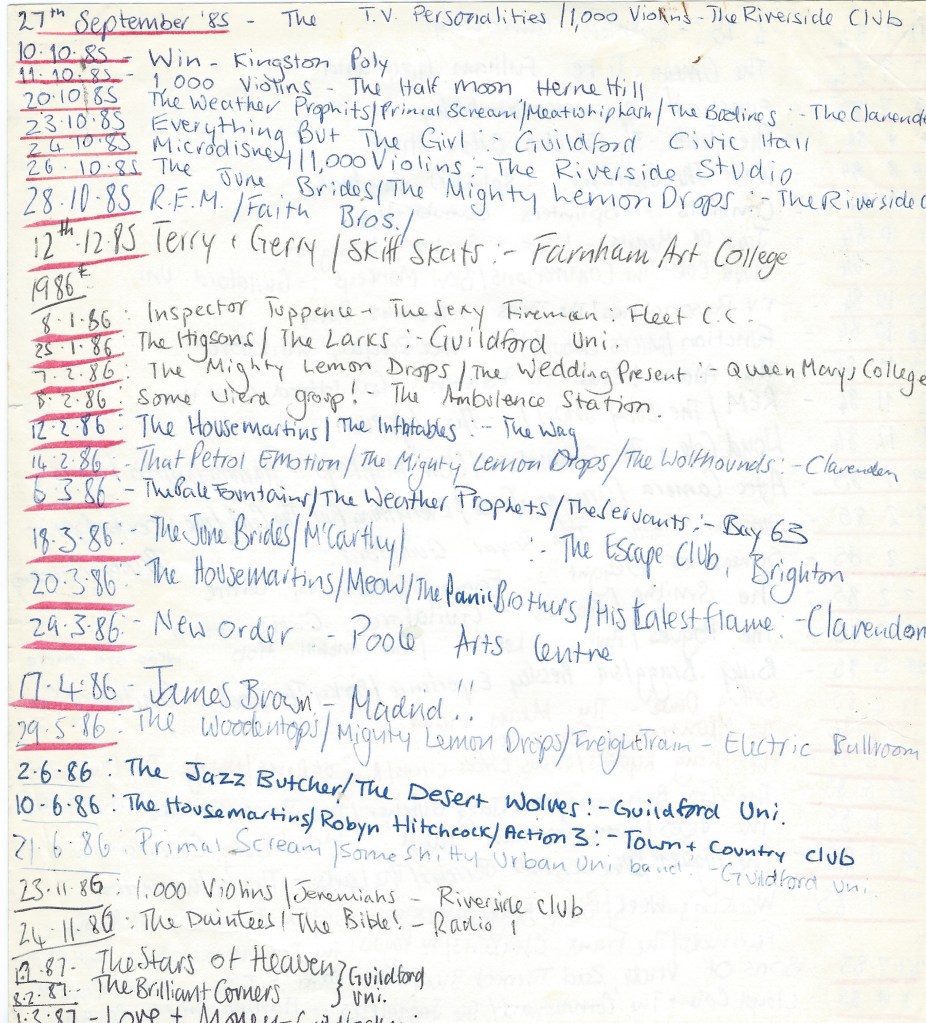 27th September '85 - The T.V. Personalities /1,000 Violins - The Riverside Club.
10.10.85 - Win - Kingston Poly
11.10.85 - 1,000 Violins - The Half Moon Herne Hill
20.10.85 The Weather Prophits/Primal Scream/Meatwhiplash/The Bodines :- The Clarende
23.10.85 Everything But The Girl :- Guildford Civic Hall
24.10.85 Microdisney/1,000 Violins :- The Riverside Studio
26.10.85 The June Brides/The Mighty Lemon Drops :- The Riverside C
28.10.85 R.E.M./Faith Bros./
12th.12.85 Terry + Gerry/Skiff Skats :- Farnham Art College
1986
8.1.86 : Inspector Tuppence + The Sexy Fireman : Fleet C.C.
25.1.86 : The Higsons/The Larks :- Guildford Uni.
7.2.86 : The Mighty Lemon Drops/The Wedding Present :- Queen Marys College
8.2.86 : Some Wierd group! - The Ambulence Station
12.2.86 : The Housemartins/The Inflatables :- The Wag
14.2.86 : That Petrol Emotion/The Mighty Lemon Drops/The Wolfhounds :- Clarenden
6.3.86 :- The Pale Fountains/The Weather Prophets/The Servants :- Bay 63
18.3.86 :- The June Brides/McCarthy/ :- The Escape Club, Brighton
20.3.86 :- The Housemartins/Meow/The Panic Brothers/His Latest flame - Clarendon
29.3.86 :- New Order - Poole Arts Centre
17.4.86 - James Brown - Madrid!!
29.5.86 : The Woodentops/Mighty Lemon Drops/Freight Train - Electric Ballroom
2.6.86 : The Jazz Butcher/The Desert Wolves! - Guildford Uni.
10.6.86 : The Housemartins/Robyn Hitchcock/Action 3 :- Town + Country club
21.6.86 : Primal Scream/Some Shitty Urban Uni band! - Guildford Uni.
23.11.86 : 1,000 Violins/Jeremiahs - Riverside club
24.11.86 : The Daintees/The Bible! - Radio 1
.87 - The Stars of Heaven } Guildford
8.2.87 - The Brilliant Corners } Uni.
.87 - Love + Money -